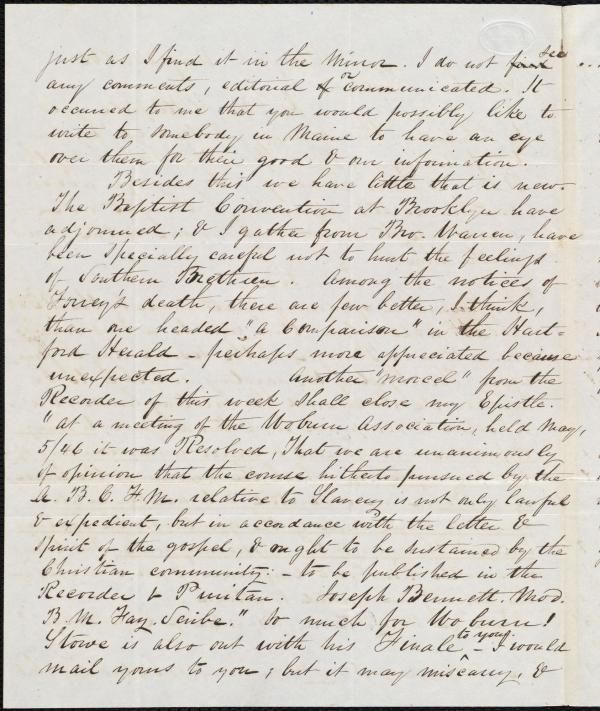 just as I find it in the Mirror. I do not find see
any comments, editorial or communicated. It
occurred to me that you would possibly like to
write to somebody in Maine to have an eye
over them for their good & our information.
Besides this we have little that is new.
The Baptist Convention at Brooklyn have
adjourned; & I gather from Bro. Warren, have
been specially careful not to hurt the feelings
of Southern Brethren. Among the notices of
Torrey's death, there are few better, I think,
than one headed "a Comparison" in the Hart-
ford Herald - perhaps more appreciated because
unexpected. Another "morcel" from the
Recorder of this week shall close my Epistle.
"At a meeting of the Woburn Association, held May,
5/46 it was Resolved, That we are unanimously
of opinion that the course hitherto pursued by the
A. B. C. F. M. relative to Slavery is not only lawful
& expedient, but in accordance with the letter &
spirit of the gospel, & ought to be sustained by the
Christian community: - to be published in the
Recorder & Puritan. Joseph Bennett. Mod.
B. M. Fay. Scribe." So much for Woburn!
Stowe is also out with his Finale ^ to you. - I would
mail yours to you; but it may miscarry, &